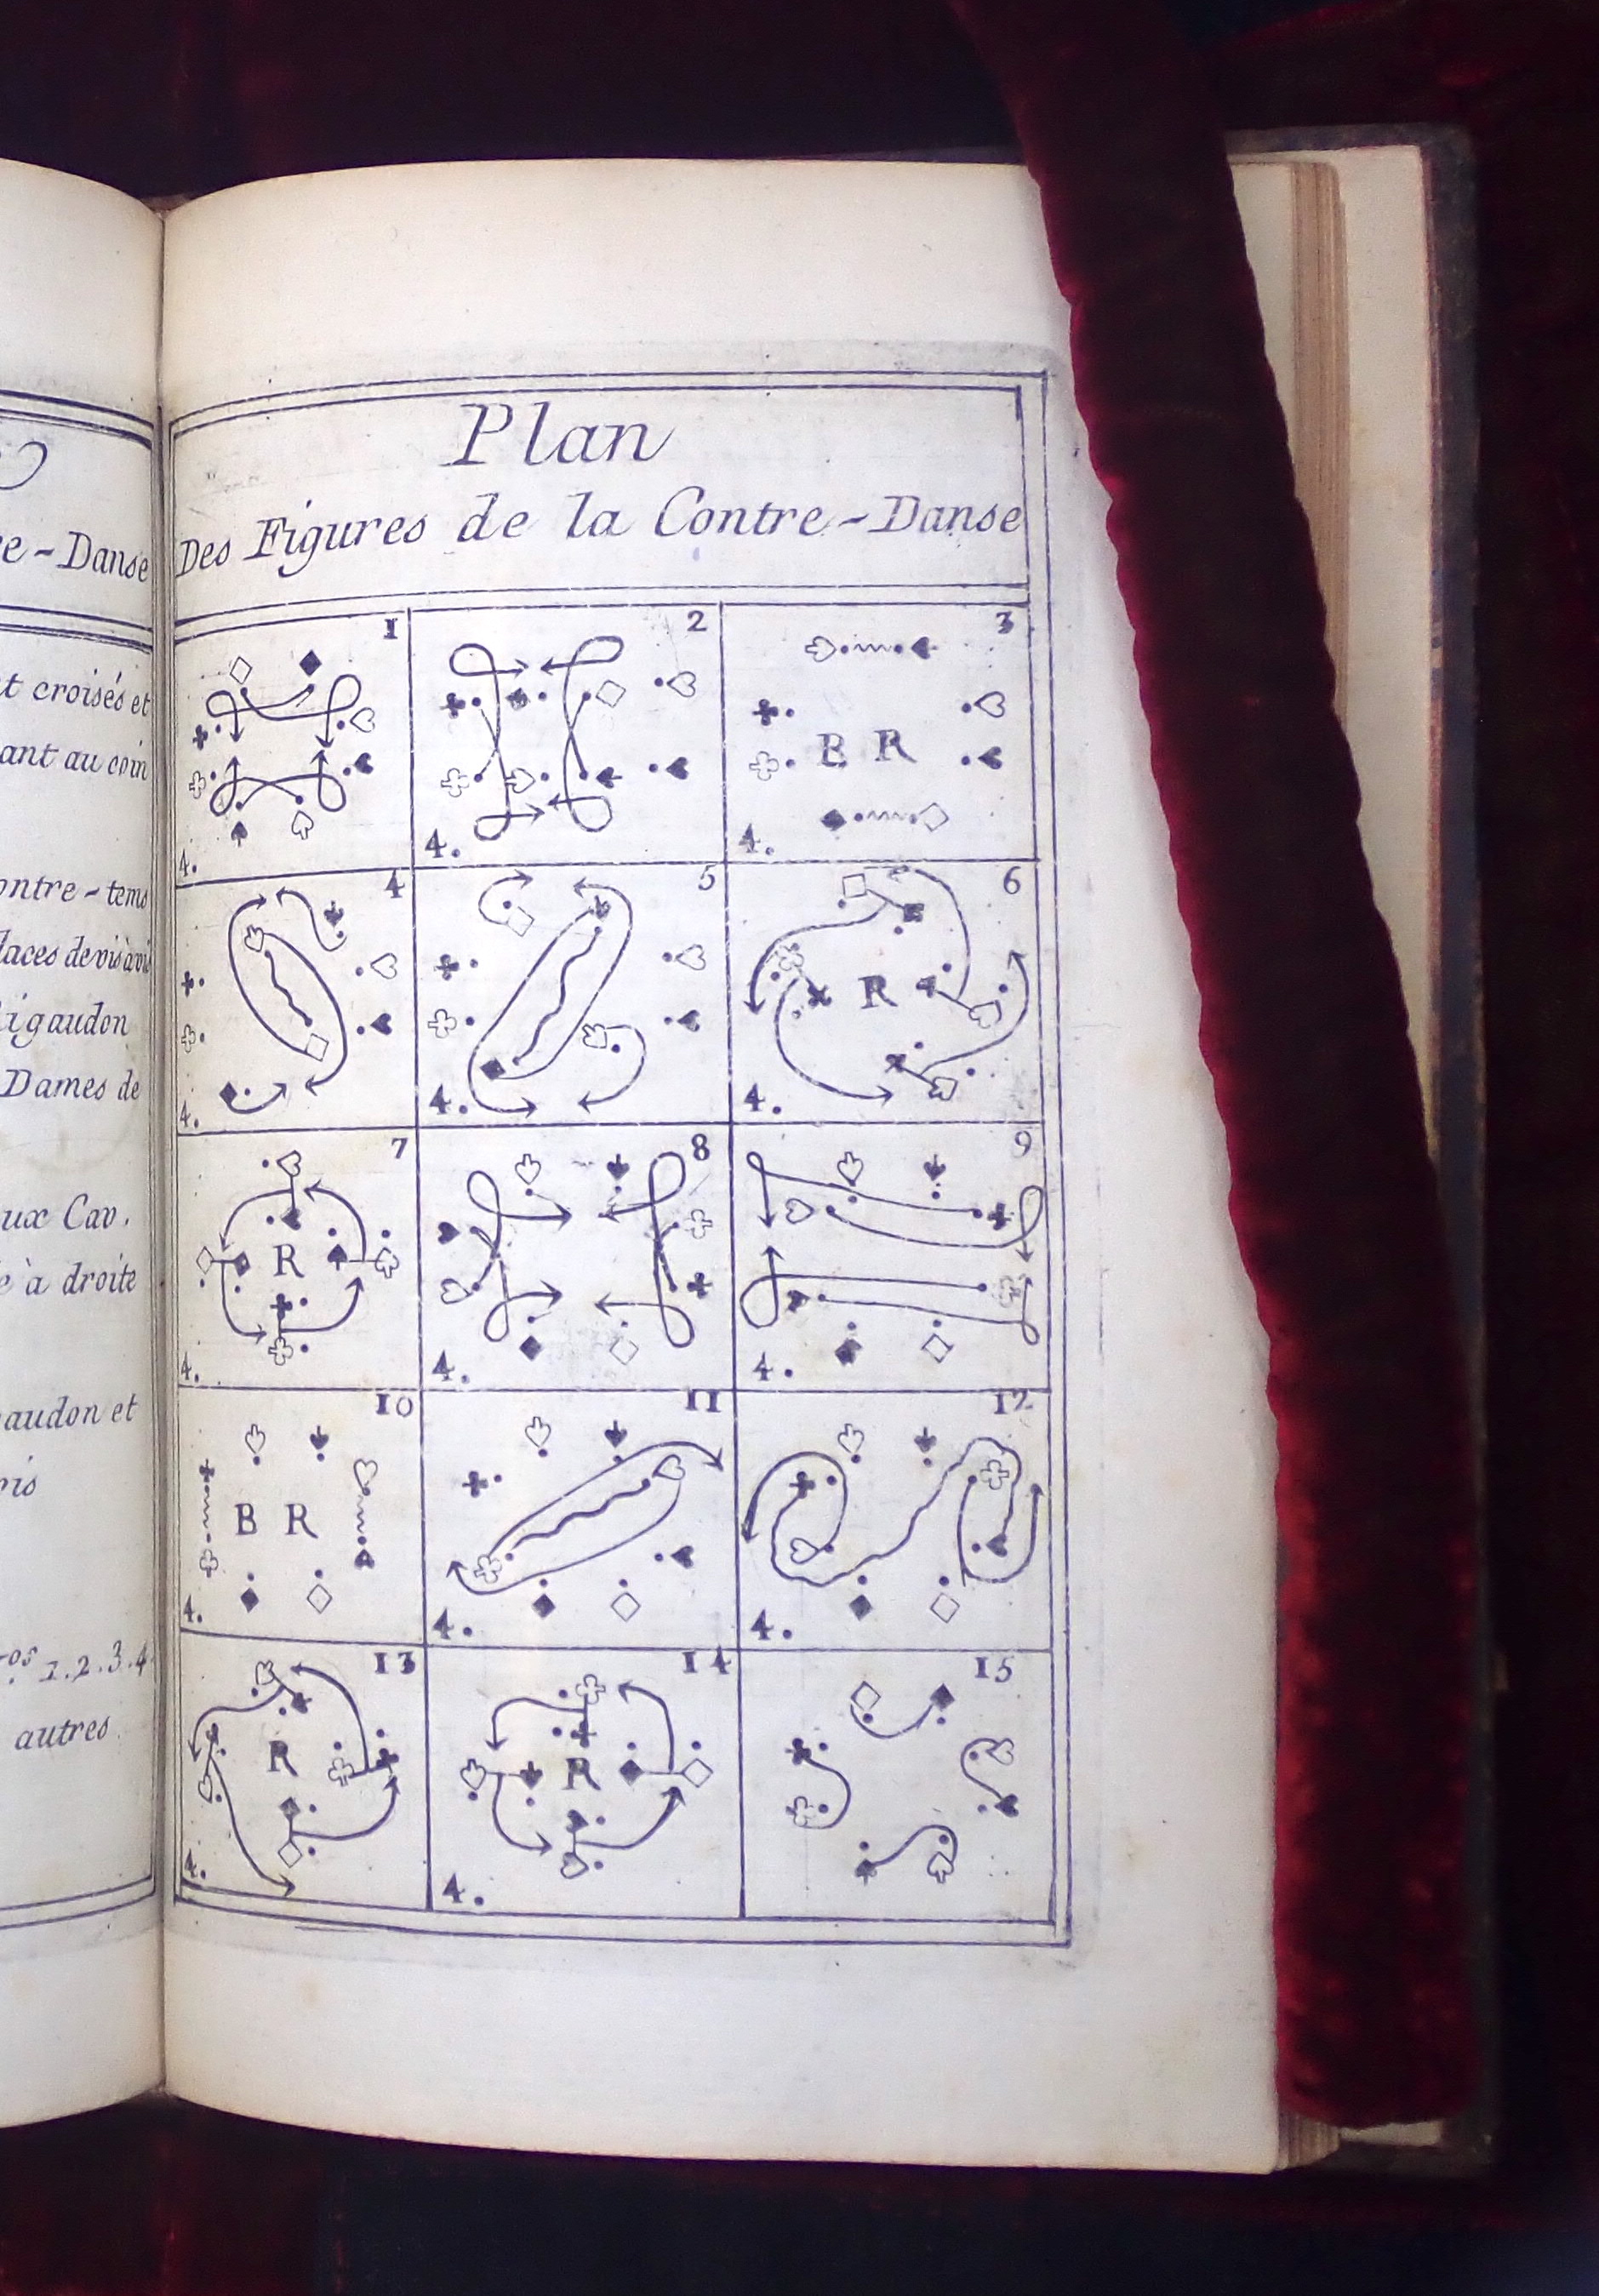 e-Danse
t croisés et
ant au coin
ontre-tems
laces devis à vis
igaudon
Dames de
ux Cav.
e à droite
audon et
ris
os 1.2.3.4
autres
Plan
Des Figures de la Contre-Danse
1 2 3
B R
4. 4. 4.
4 5 6
R
4. 4. 4.
7 8 9
R
4. 4. 4.
10 11 12
B R
4. 4. 4.
13 14 15
R R
4. 4.